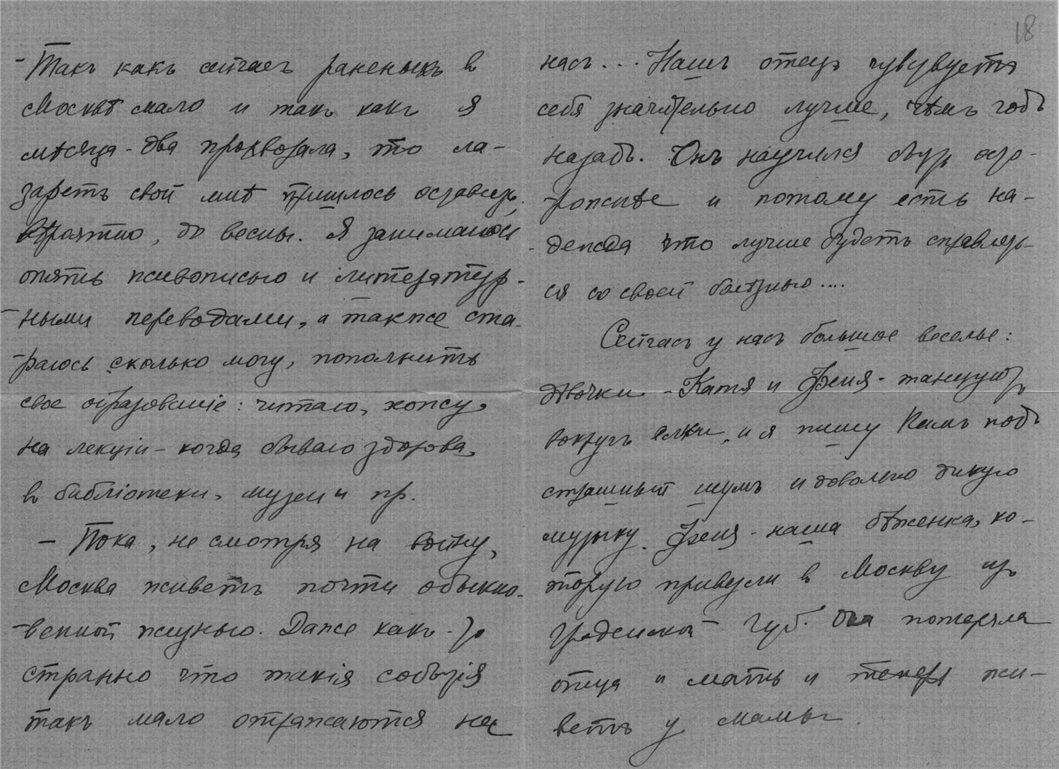 Такъ какъ сейчасъ раненыхъ в
Москвѣ мало и такъ какъ я
мѣсяца-два прохворала, то ла-
заретъ свой мнѣ пришлось оставить,
вѣроятно, до весны. Я занимаюсь
опять живописью и литератур-
ными переводами, а также ста-
раюсь сколько могу, пополнить
свое образованіе: читаю, хожу
на лекціи - когда бываю здорова,
в библіотеки, музеи и пр.
- Пока, не смотря на войну,
Москва живетъ почти обыкно-
венной жизнью. Даже какъ-то
странно что такія событія
такъ мало отражаются на
18
насъ... Нашъ отецъ чувствуетъ
себя значительно лучше, чѣмъ годъ
назадъ. Онъ научился быть осто-
рожнѣе и потому есть на-
дежда что лучше будетъ справлять-
ся со своей болѣзнью....
Сейчасъ у насъ большое веселье:
дѣвочки - Катя и Феня - танцуютъ
вокругъ елки, и я пишу Вамъ подъ
страшный шумъ и довольно дикую
музыку. Феня - наша бѣженка, ко-
торую привезли в Москву изъ
Гродненской губ. Она потеряла
отца и мать и теперь жи-
ветъ у мамы.